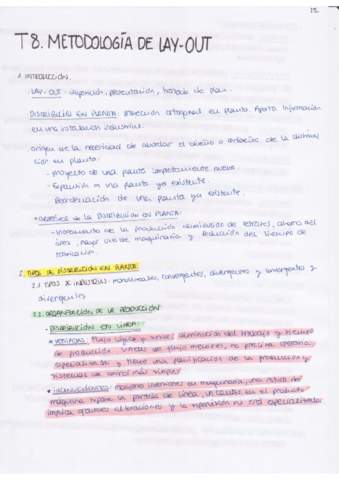 T8. METODOLOGÍA DE LAY-OUT
1. INTRODUCCIÓN.
LAY-OUT: disposición, presentación, trazado de plan.
DISTRIBUCIÓN EN PLANTA: proyección ortogonal en planta. Aporta información
en una instalación industrial.
Origen de la necesidad de abordar el diseño o rediseño de la distribu
ción en planta:
- proyecto de una planta completamente nueva.
- Expansión en una planta ya existente.
Reordenación de una planta ya existente.
* OBJETIVOS de la DISTRIBUCIÓN EN PLANTA:
- Incremento de la producción, disminución de retrasos, ahorro del
área, mayor uso de maquinaria y reducción del tiempo de
fabricación.
2. TIPOS DE DISTRIBUCIÓN EN PLANTA
2.1 TIPOS DE INDUSTRIAS: monolineales, convergentes, divergentes y convergentes y
divergentes
2.2. ORGANIZACIÓN DE LA PRODUCCIÓN
- DISTRIBUCIÓN EN LÍNEA:
* VENTAJAS: flujo lógico y suave, disminución del trabajo y tiempo
de producción, líneas de flujo mejores, no precisa operario
especializado y tiene una planificación de la producción y
sistemas de control más simples
* INCONVENIENTES: mayores inversiones en maquinaria, una rotura de
máquina supone la parada de línea, un cambio en el producto
implica grandes alteraciones y la supervisión no está especializada